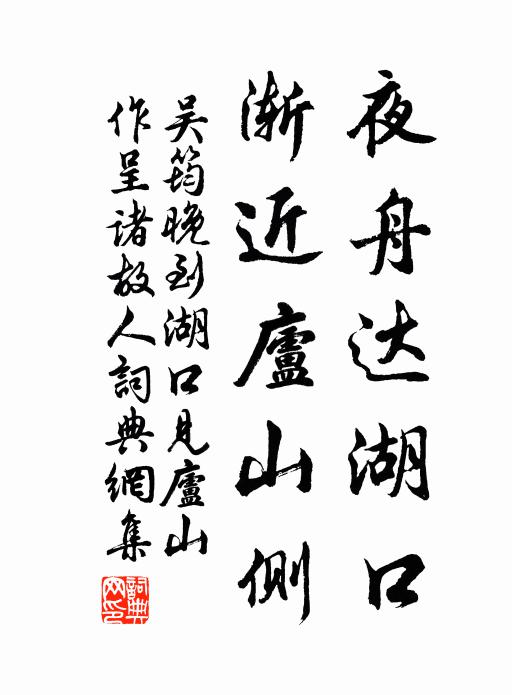 夜舟达湖口
渐近廬山侧
吴筠晚到湖口见廬山
作呈诸故人詞典網集
詞典网印